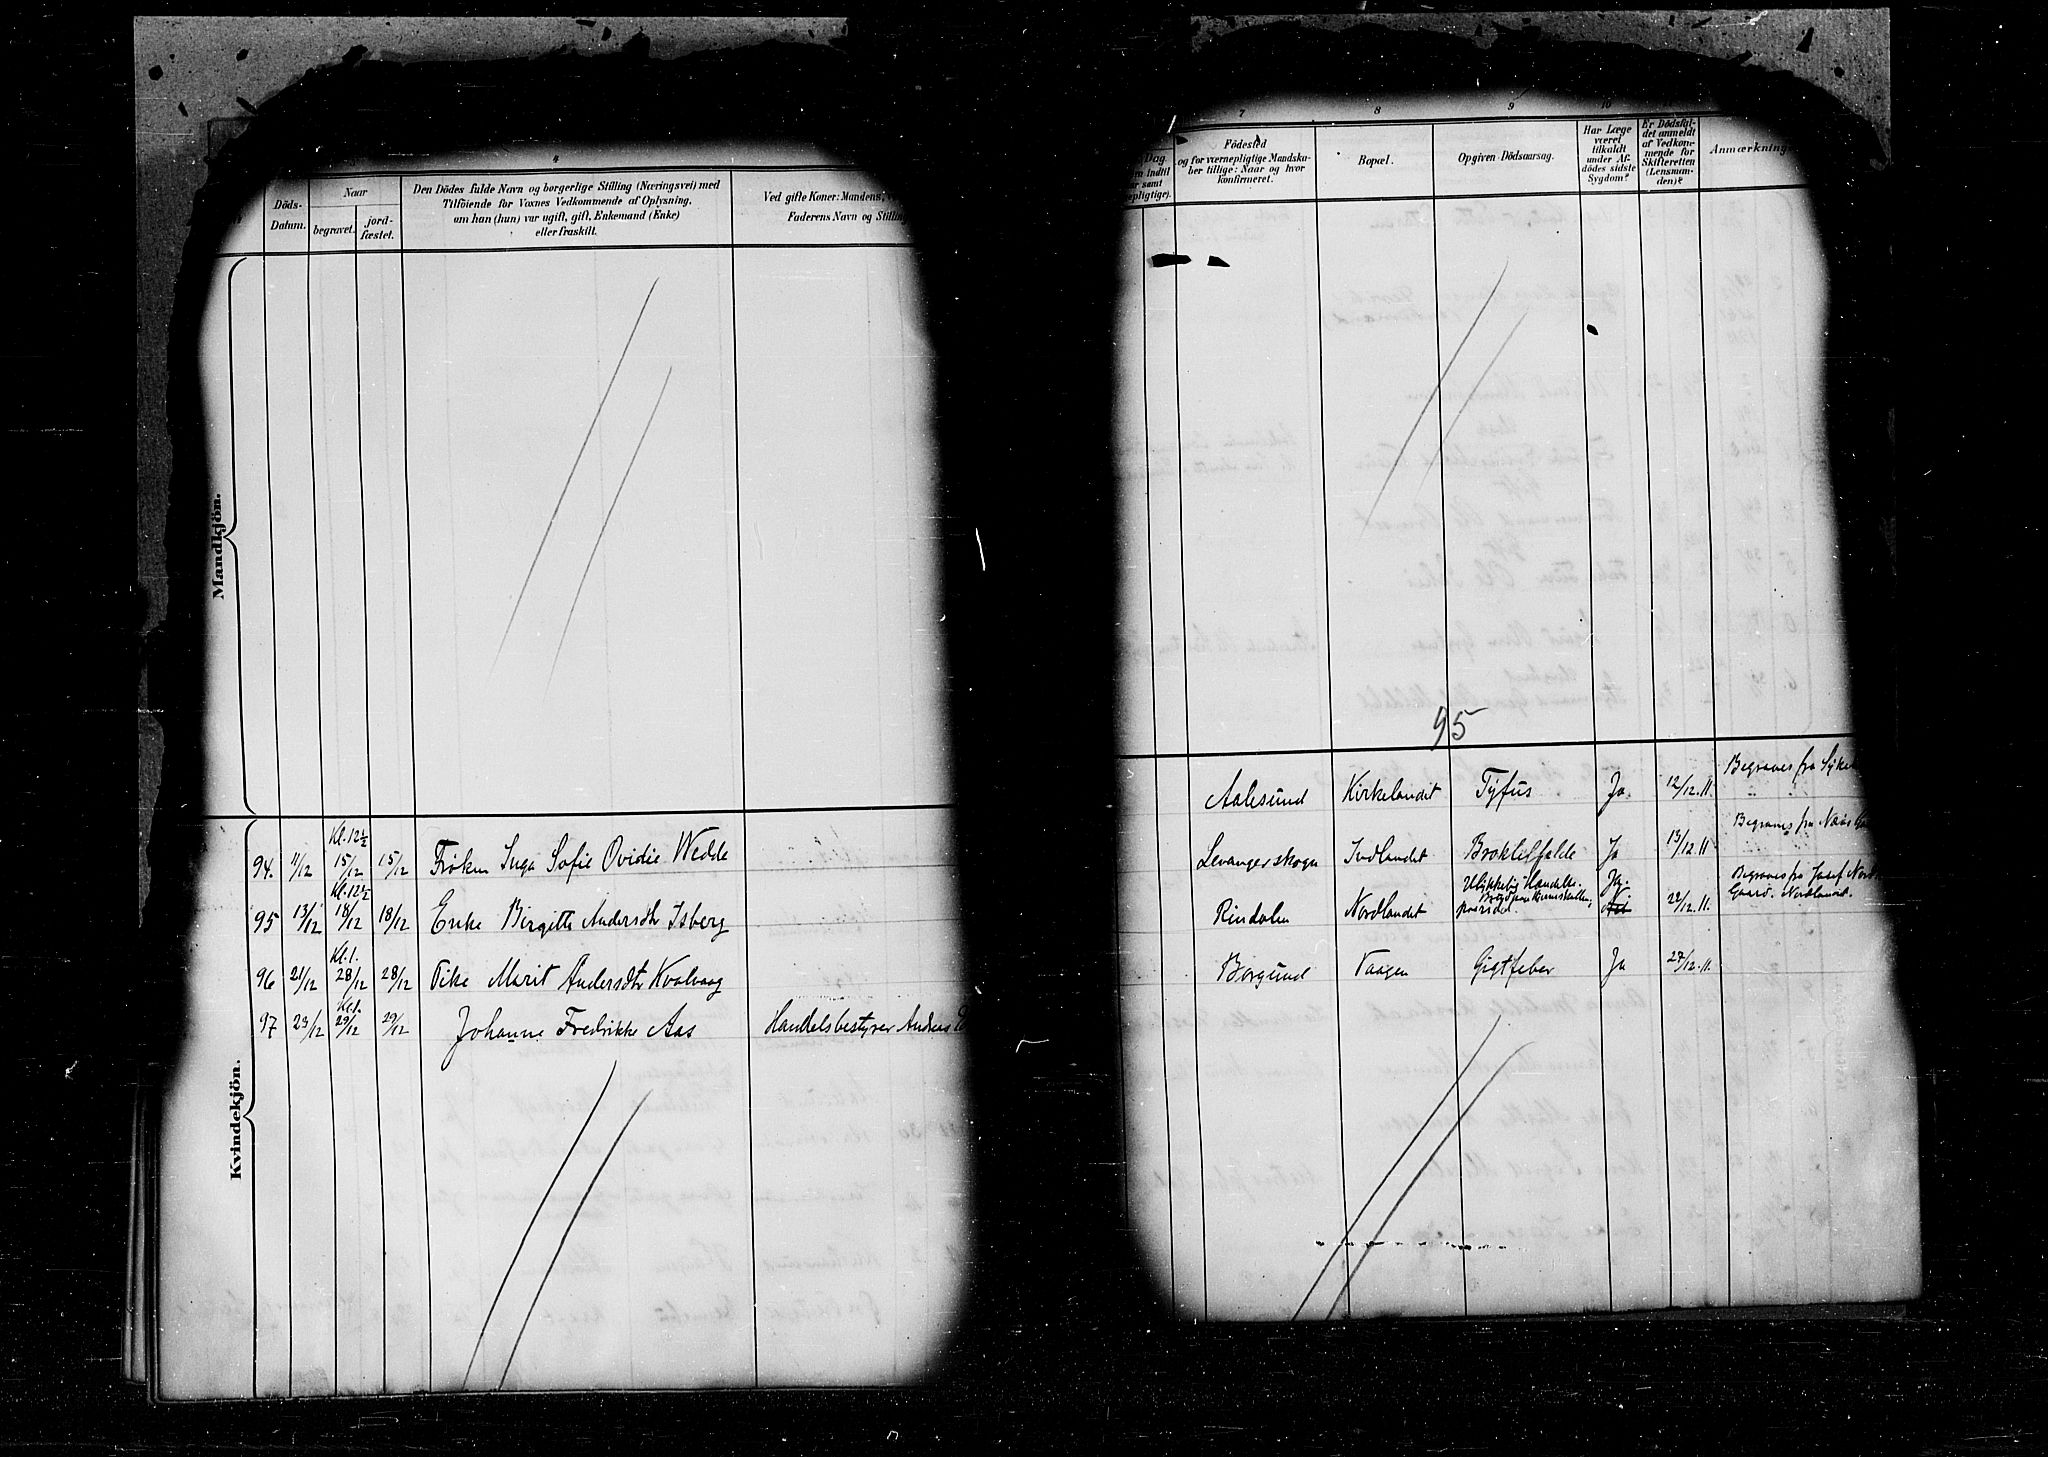 4
Döds-
Datum.
Naar
begravet.
jord-
fæstet.
Den Dödes fulde Navn og borgerlige Stilling (Næringsvei) med
Tilföiende for Voxnes Vedkommende af Oplysning,
om han (hun) var ugift, gift, Enkemand (Enke)
eller fraskilt.
Ved gifte Koner: Mandens,
Faderens Navn og Stilling
Mandkjön.
Kvindekjön.
Kl. 12½
94. 11/12 15/12 15/12 Frøken Inga Sofie Ovidie Wedde
Kl. 12½
95 13/12 18/12 18/12 Enke Birgitte Andersdtr Isberg
Kl. 1.
96 21/12 28/12 28/12 Pike Marit Andersdtr Kvalvaag
Kl. 1.
97 23/12 29/12 29/12 Johanne Fredrikke Aas Handelsbestyrer Andreas
7 8 9 10
Dag
indtil
samt
Födested
og for værnepligtige Mandska-
ber tillige: Naar og hvor
konfirmeret.
Bopæl.
Opgiven Dödsaarsag.
Har Læge
været
tilkaldt
under Af-
dödes sidste
Sygdom?
Er Dödsfal-
det anmeldt
af Vedkom-
mende for
Skifteretten
(Lensman-
den)?
Anmærkninge
95
Aalesund Kirkelandet Tyfus Ja. 12/12.11. Begraves fra
Levangerskogn Indlandet Ja 13/12.11 Begraves fra
Rindalen Nordlandet Ulykkelig Hændelse. Ja. 22/12.11. Begraves fra Josef
Gaard. Nordlandet.
Borgund Vaagen Gigtfeber Ja 27/12.11.